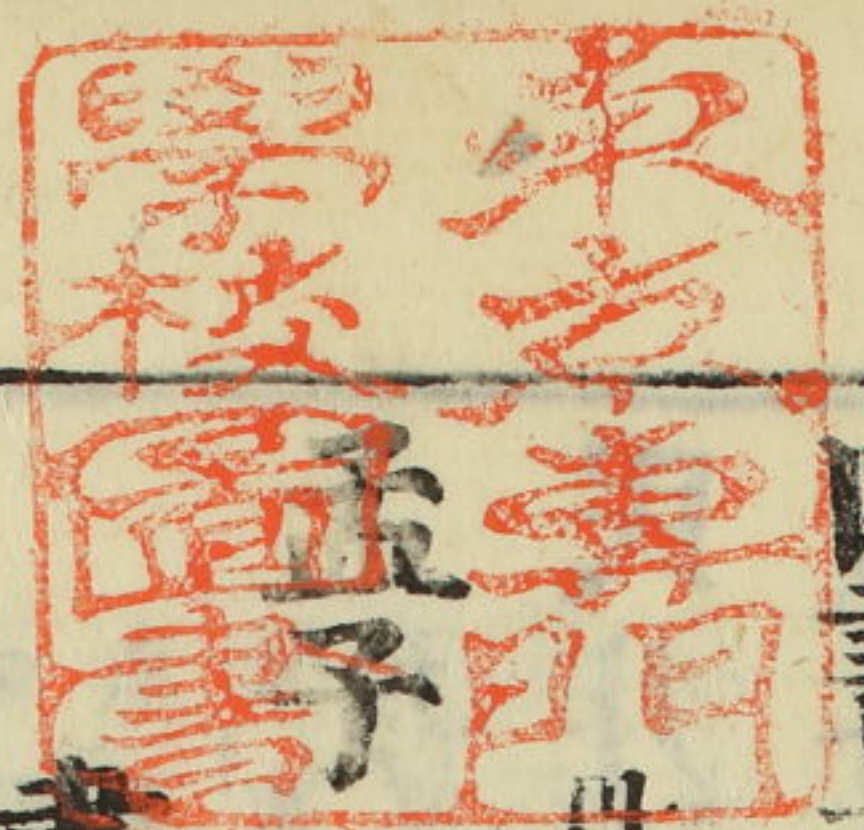 東京專門
學校圖書
子